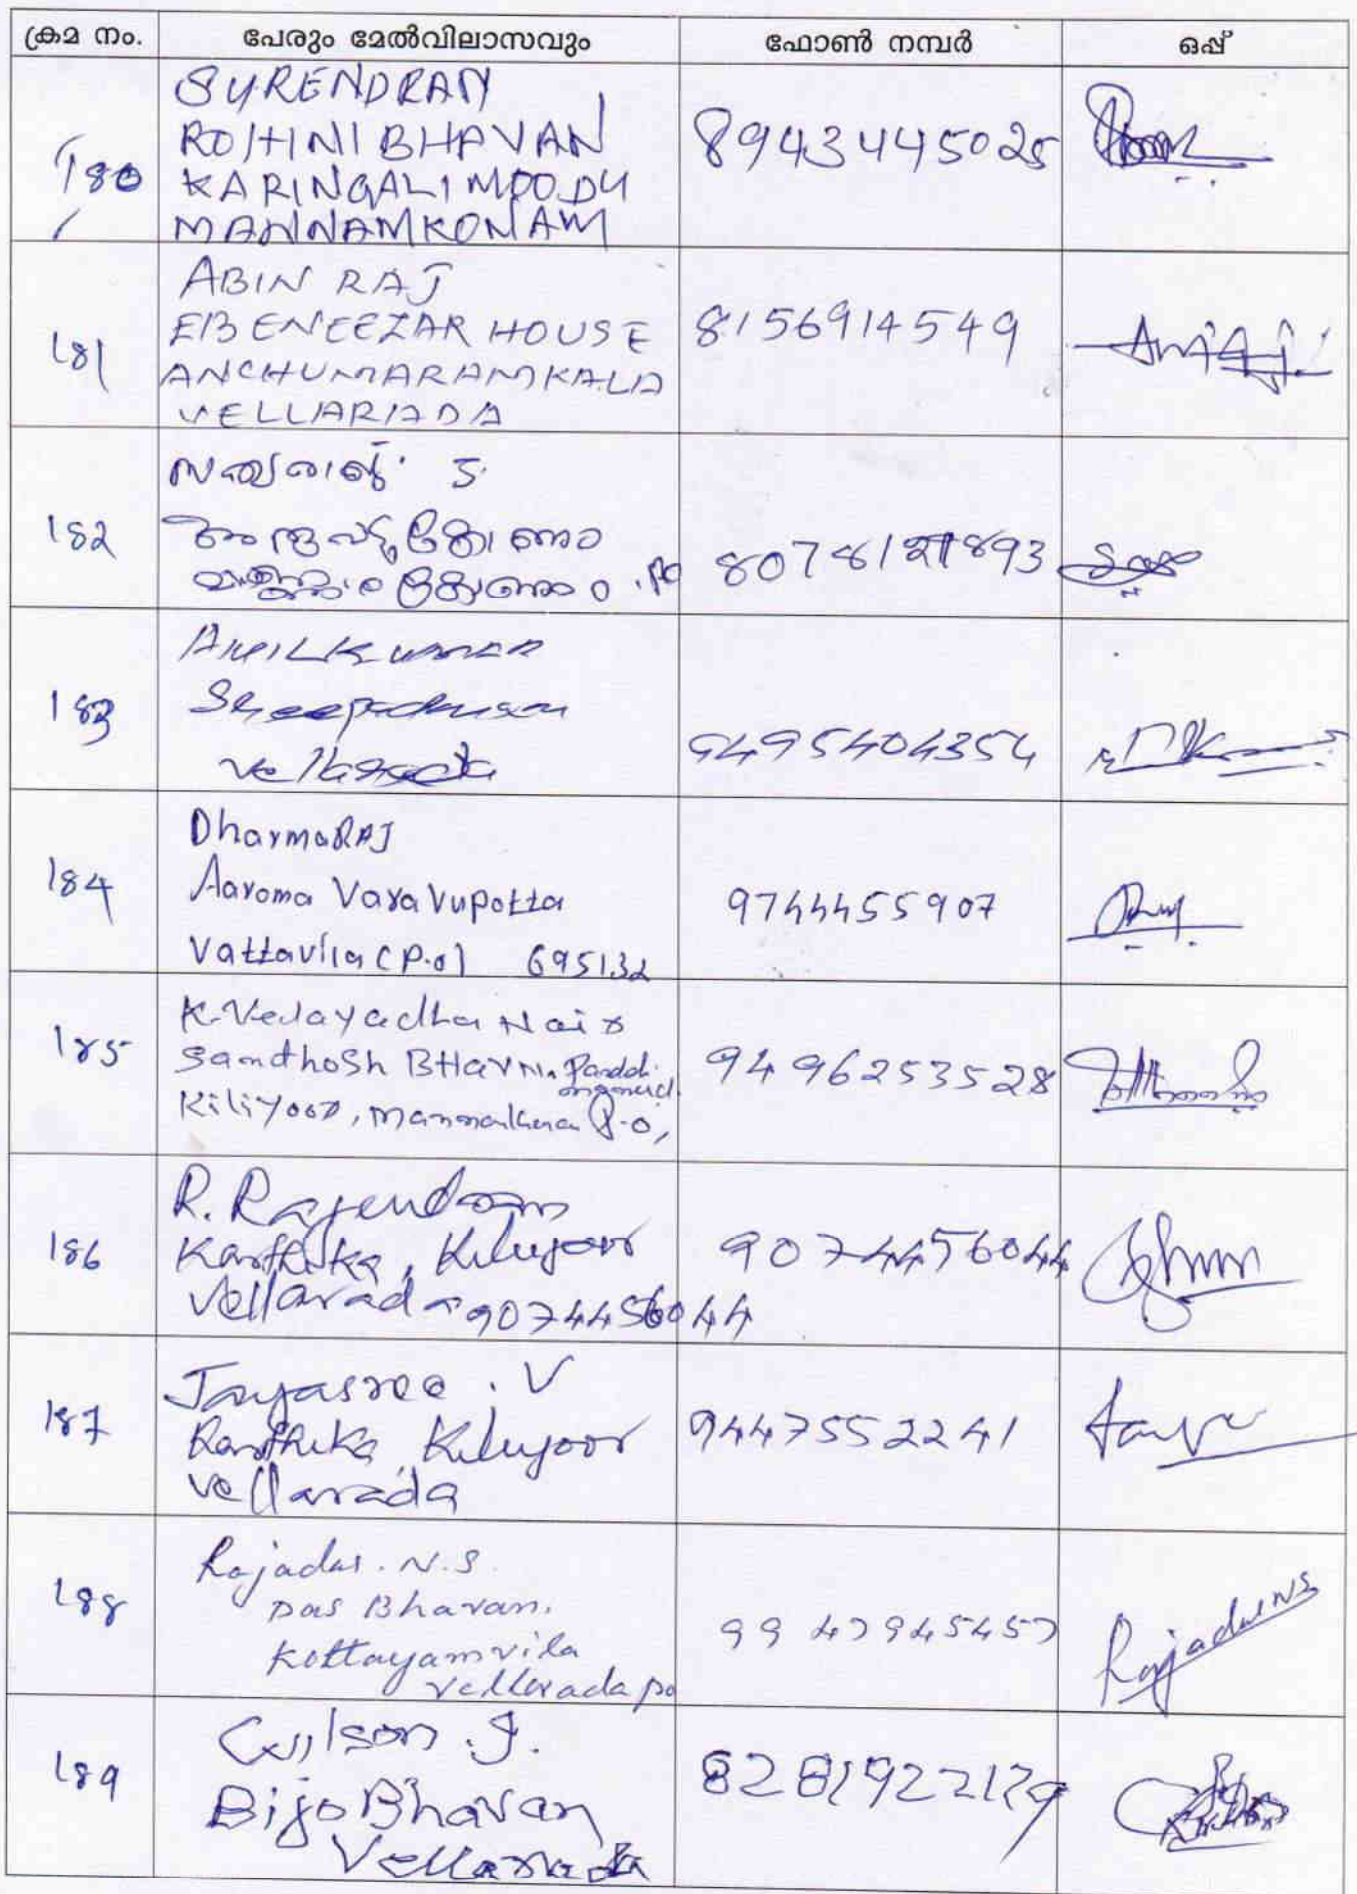 ക്രമ നം. പേരും മേൽവിലാസവും ഫോൺ നമ്പർ ഒപ്പ്
180
SURENDRAN
ROHINI BHAVAN
KARINGALIMOODU
MANNAMKONAM
8943445025
181
ABIN RAJ
EBENEEZAR HOUSE
ANCHUMARAMKALA
VELLARADA
8156914549
182
183
ANILKUMAR
9495404354
184
DharmaRAJ
Aaroma Varavupotta
Vattavila (P.o) 695132
9744455907
185
K. Velayadha Nair
Sandhosh BHavN.
Kiliyoor, Mannamkona P.O,
9496253528
186
R. Rajendran
Karthika, Kiliyoor
Vellarada 9074456044
9074456044
187
Jayasree . V
Karthika, Kiliyoor
Vellarada
9447552241
188
Rajadas. N.S.
Das Bhavan.
Kottayamvila
Vellarada po
9947945457
Rajadas NS
189
Wilson . J.
Bijo Bhavan
Vellarada